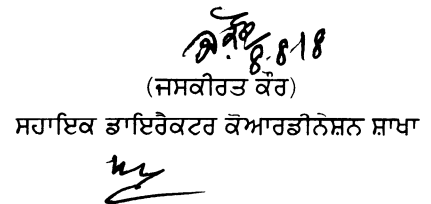 8.8.18
(ਜਸਕੀਰਤ ਕੌਰ)
ਸਹਾਇਕ ਡਾਇਰੈਕਟਰ ਕੋਆਰਡੀਨੇਸ਼ਨ ਸ਼ਾਖਾ